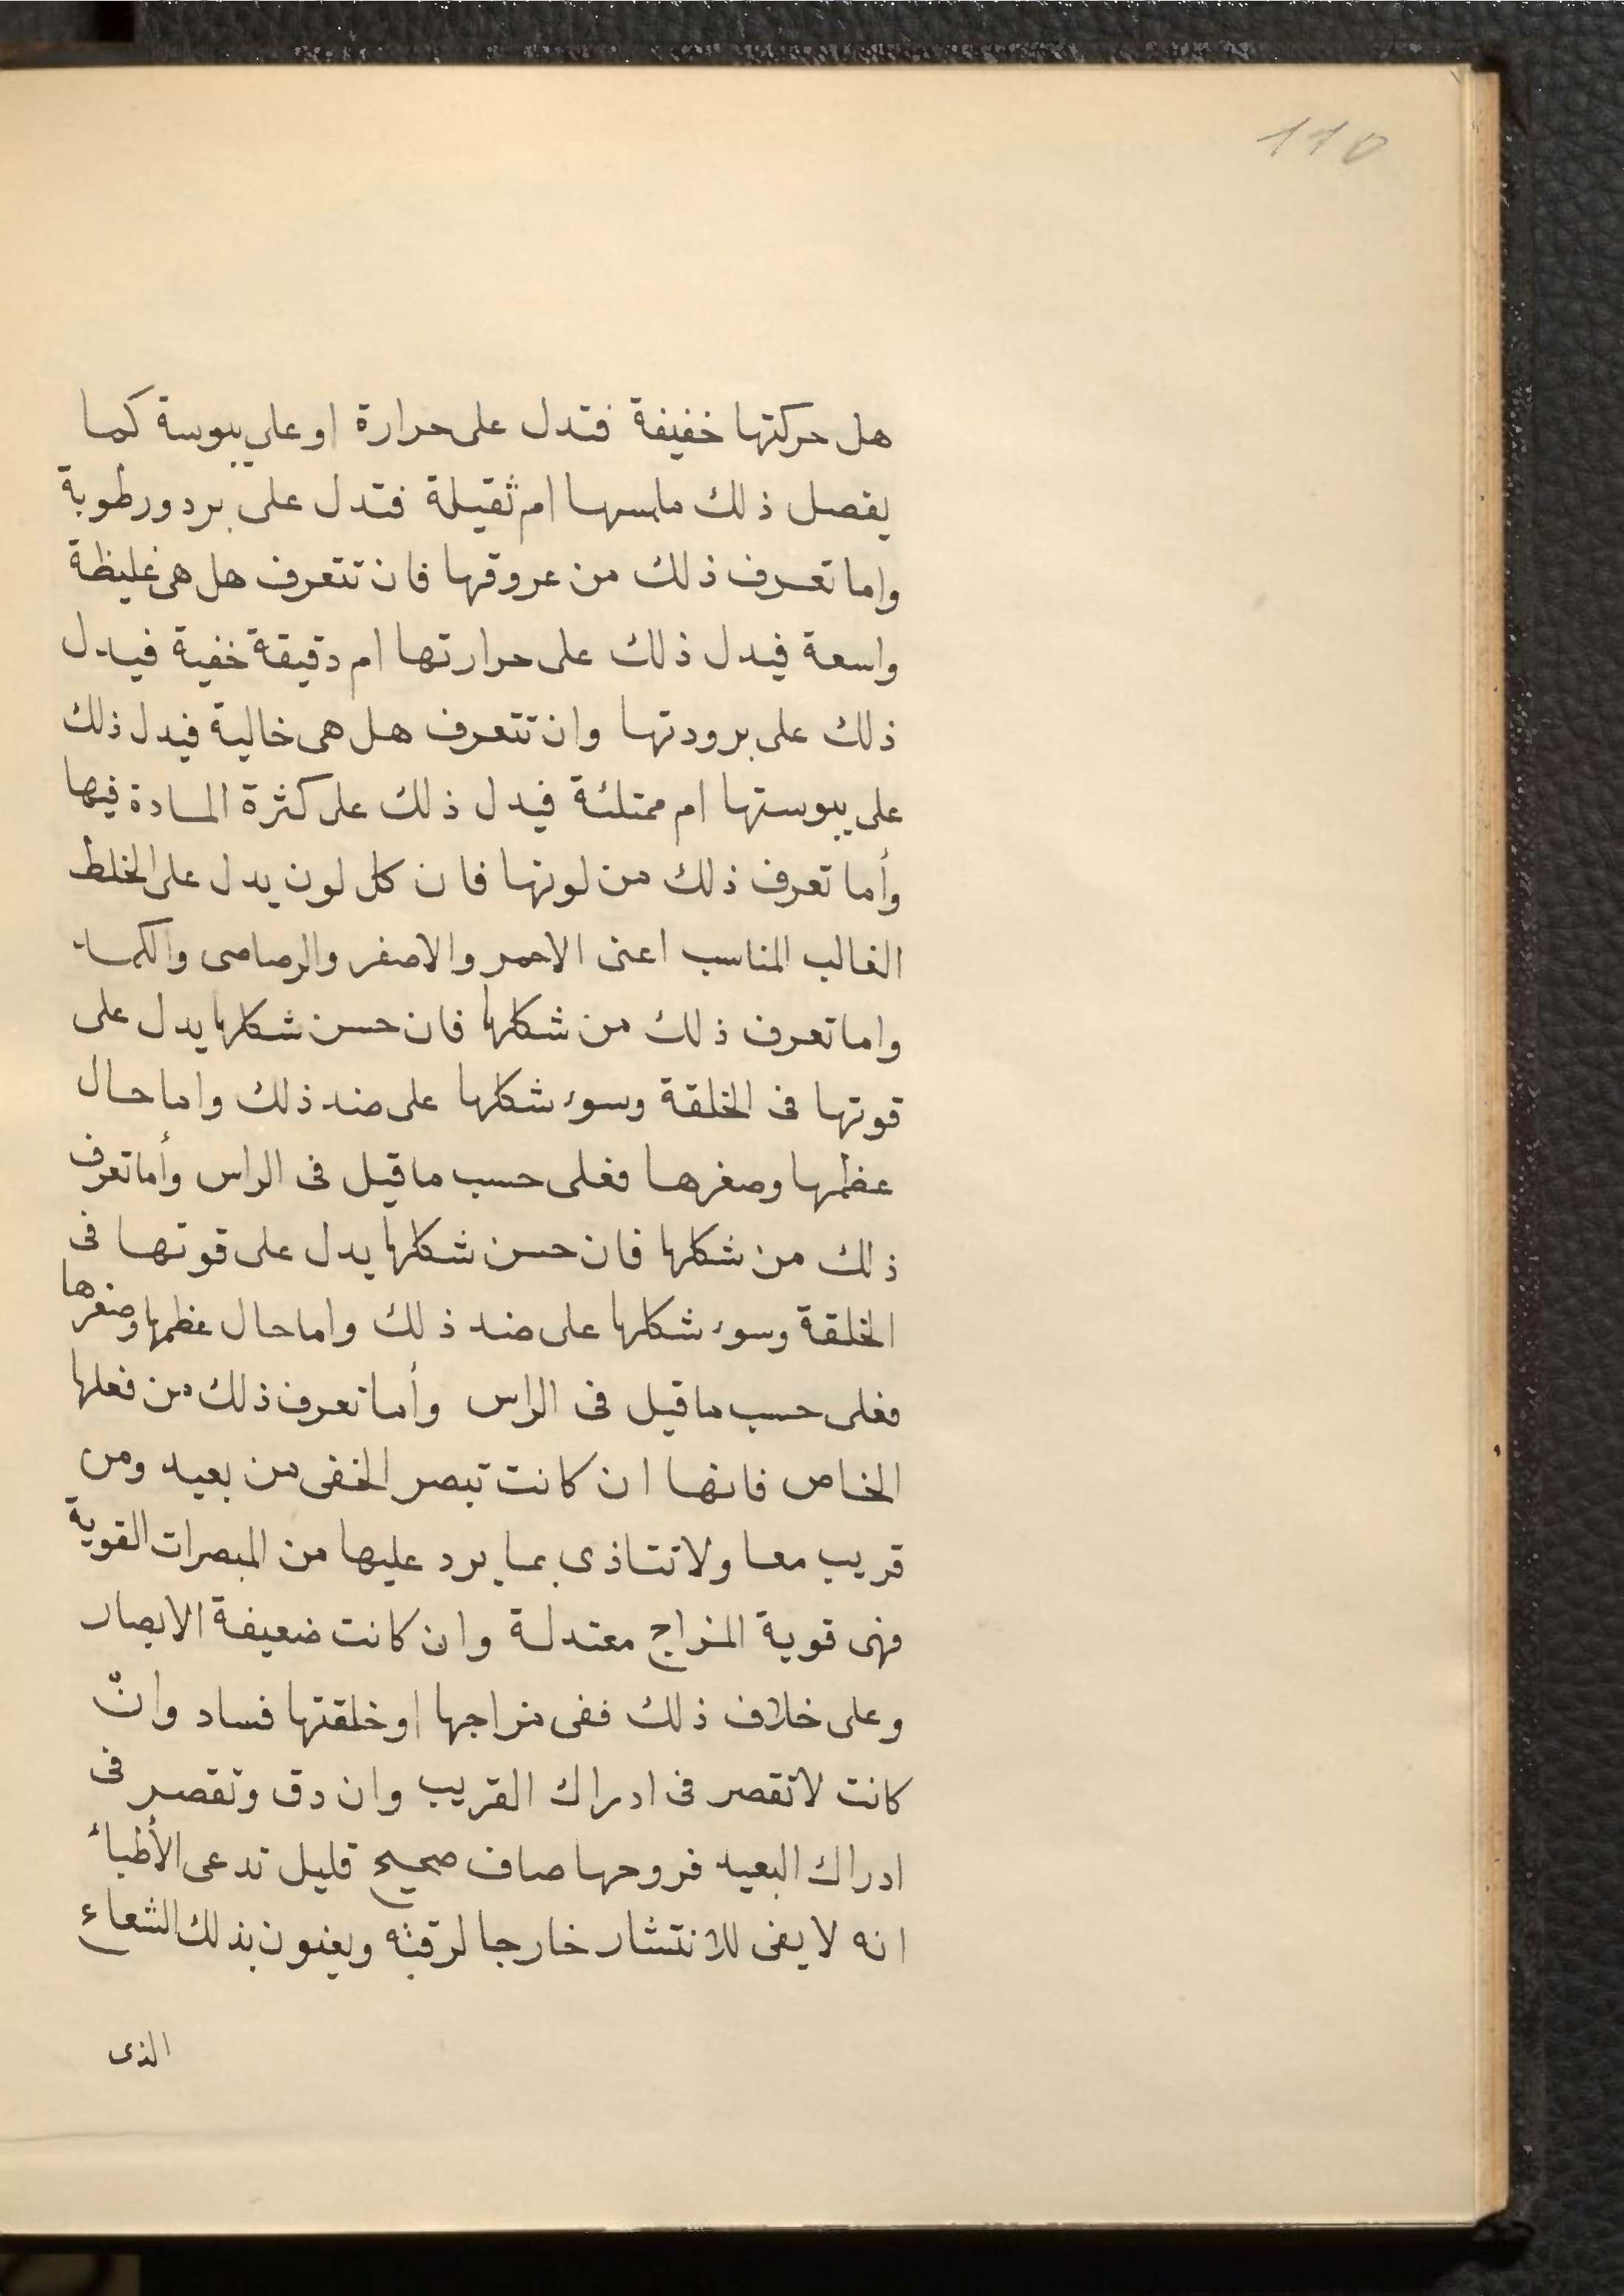 110
هل حركتها خفيفة فتدل على حرارة او على يبوسة كما
يفصل ذلك ملمسها ام ثقيلة فتدل على برد ورطوبة
واما تعرف ذلك من عروقها فان تتعرف هل هى غليظة
واسعة فيدل ذلك على حرارتها ام دقيقة خفية فيدل
ذلك على برودتها وان تتعرف هل هى خالية فيدل ذلك
على يبوستها ام ممتلئة فيدل ذلك على كثرة المادة فيها
وأما تعرف ذلك من لونها فان كل لون يدل على الخلط
الغالب المناسب اعنى الاحمر والاصفر والرصاصى والكمد
واما تعرف ذلك من شكلها فان حسن شكلها يدل على
قوتها فى الخلقة وسوء شكلها على ضد ذلك واما حال
عظمها وصغرها فعلى حسب ما قيل فى الراس وأما تعرف
ذلك من شكلها فان حسن شكلها يدل على قوتها فى
الخلقة وسوء شكلها على ضد ذلك واما حال عظمها وصغرها
فعلى حسب ما قيل فى الراس وأما تعرف ذلك من فعلها
الخاص فانها ان كانت تبصر الخفى من بعيد ومن
قريب معا ولا تتاذى بما يرد عليها من المبصرات القوية
فهى قوية المزاج معتدلة وان كانت ضعيفة الابصار
وعلى خلاف ذلك ففى مزاجها او خلقتها فساد وانّ
كانت لا تقصر فى ادراك القريب وان دق وتقصر فى
ادراك البعيد فروحها صاف صحيح قليل تدعى الأطباء
انه لا يفى للانتشار خارجا لرقته ويعنون بذلك الشعاع
الذى